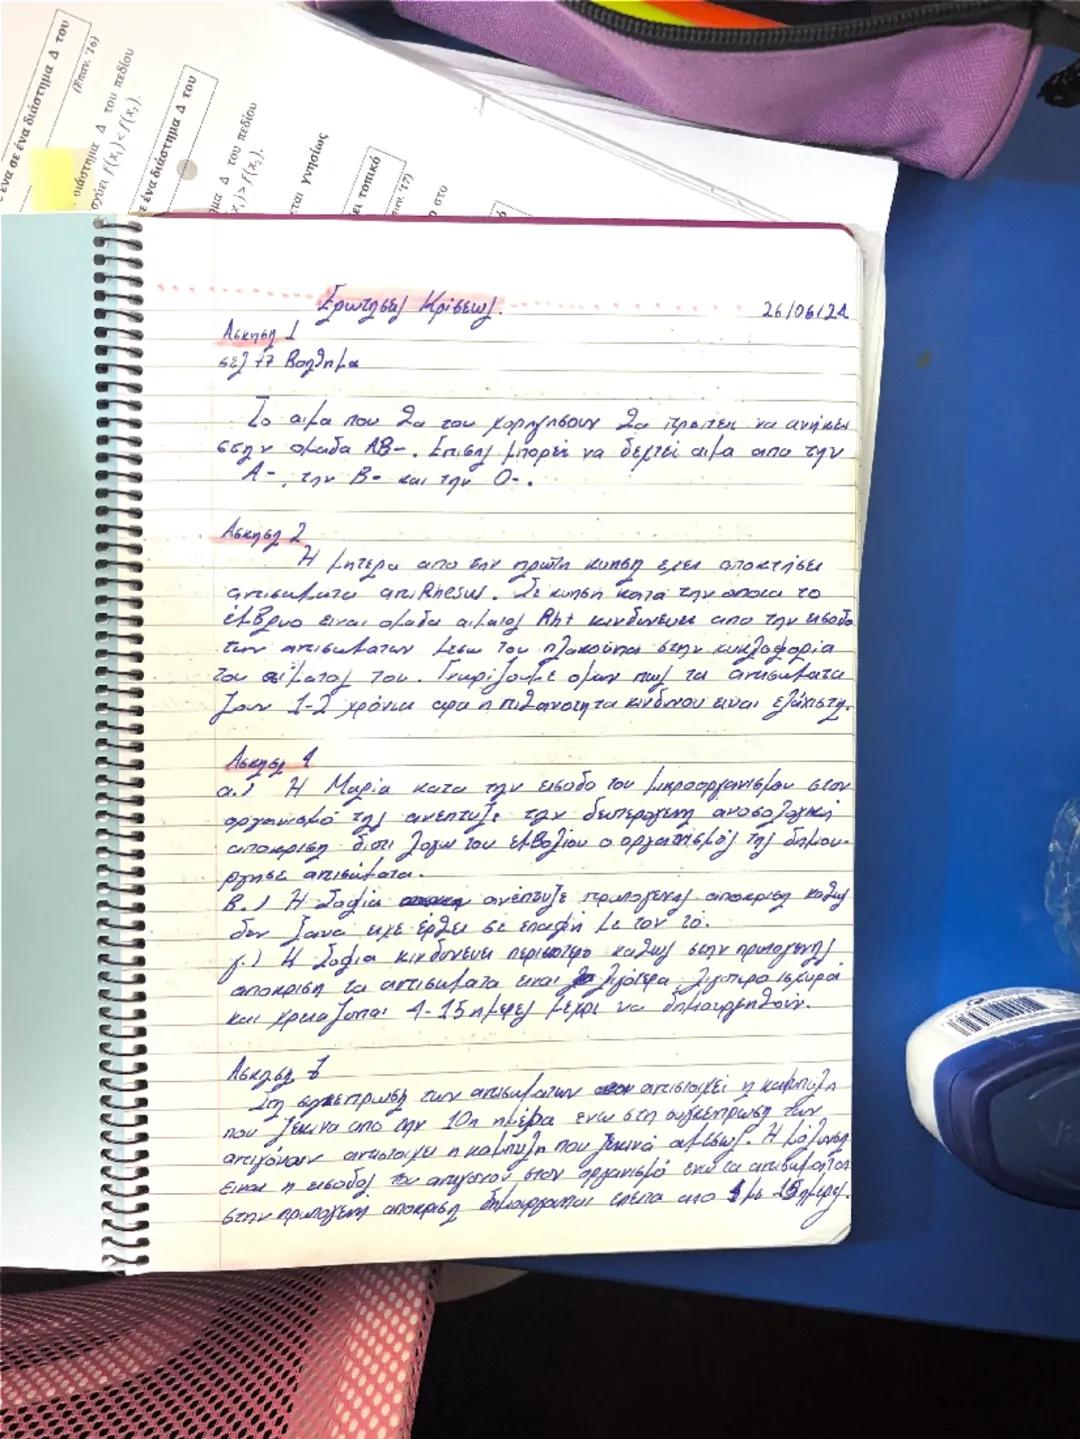 ένα σε ένα διάστημα Δ του
(Επαν. '16)
διάστημα Δ του πεδίου
ισχύει f(x₁) < f(x₂).
ε ένα διάστημα Δ του
μα Δ του πεδίου
x₁) > f(x₂).
εται γνησίως
ει τοπικό
παν. '17)
ο στο
Ερωτησεις Κρίσεως. 26/06/24
Ασκηση 1
σελ 77 Βοηθημα
Το αιμα που θα του χορηγησουν θα πρεπει να ανήκει
στην ομαδα AB-. Επισης μπορει να δεχτεί αιμα απο την
A-, την B- και την O-.
Ασκηση 2
Η μητερα απο την πρωτη κυηση εχει αποκτήσει
αντισωματα αντιRhesus. Σε κυηση κατα την οποια το
έμβρυο ειναι ομαδα αιματος Rh+ κινδυνευει απο την εισοδο
των αντισωματων μεσω του πλακούντα στην κυκλοφορία
του αίματος του. Γνωριζουμε ομως πως τα αντισωματα
ζουν 1-2 χρόνια αρα η πιθανοτητα κινδυνου ειναι ελάχιστη.
Ασκηση 4
α.) Η Μαρία κατα την εισοδο του μικροοργανισμου στον
οργανισμό της ανεπτυξε την δευτερογενη ανοσολογική
αποκριση διοτι λογω του εμβολιου ο οργανισμός της δημιου-
ργησε αντισώματα.
Β.) Η Σοφία ανέπτυξε πρωτογενης αποκριση καθως
δεν ξανα ειχε έρθει σε επαφή με τον ιό.
γ.) Η Σοφια κινδυνευει περισσοτερο καθως στην πρωτογενης
αποκριση τα αντισωματα ειναι λιγότερα λιγοτερο ισχυρα
και χρειαζονται 4-15 ημερες μεχρι να δημιουργηθούν.
Ασκηση
Στη συγκεντρωση των αντισωματων αντιστοιχεί η καμπυλη
που ξεκινα απο την 10η ημέρα ενω στη συγκεντρωση των
αντιγόνων αντιστοιχει η καμπυλη που ξεκινά αμεσως. Η μολυνση
ειναι η εισοδος του αντιγονου στον οργανισμό ενω τα αντισωματα
στην πρωτογενη αποκριση δημιουργουνται επειτα απο με 15 ημερες.